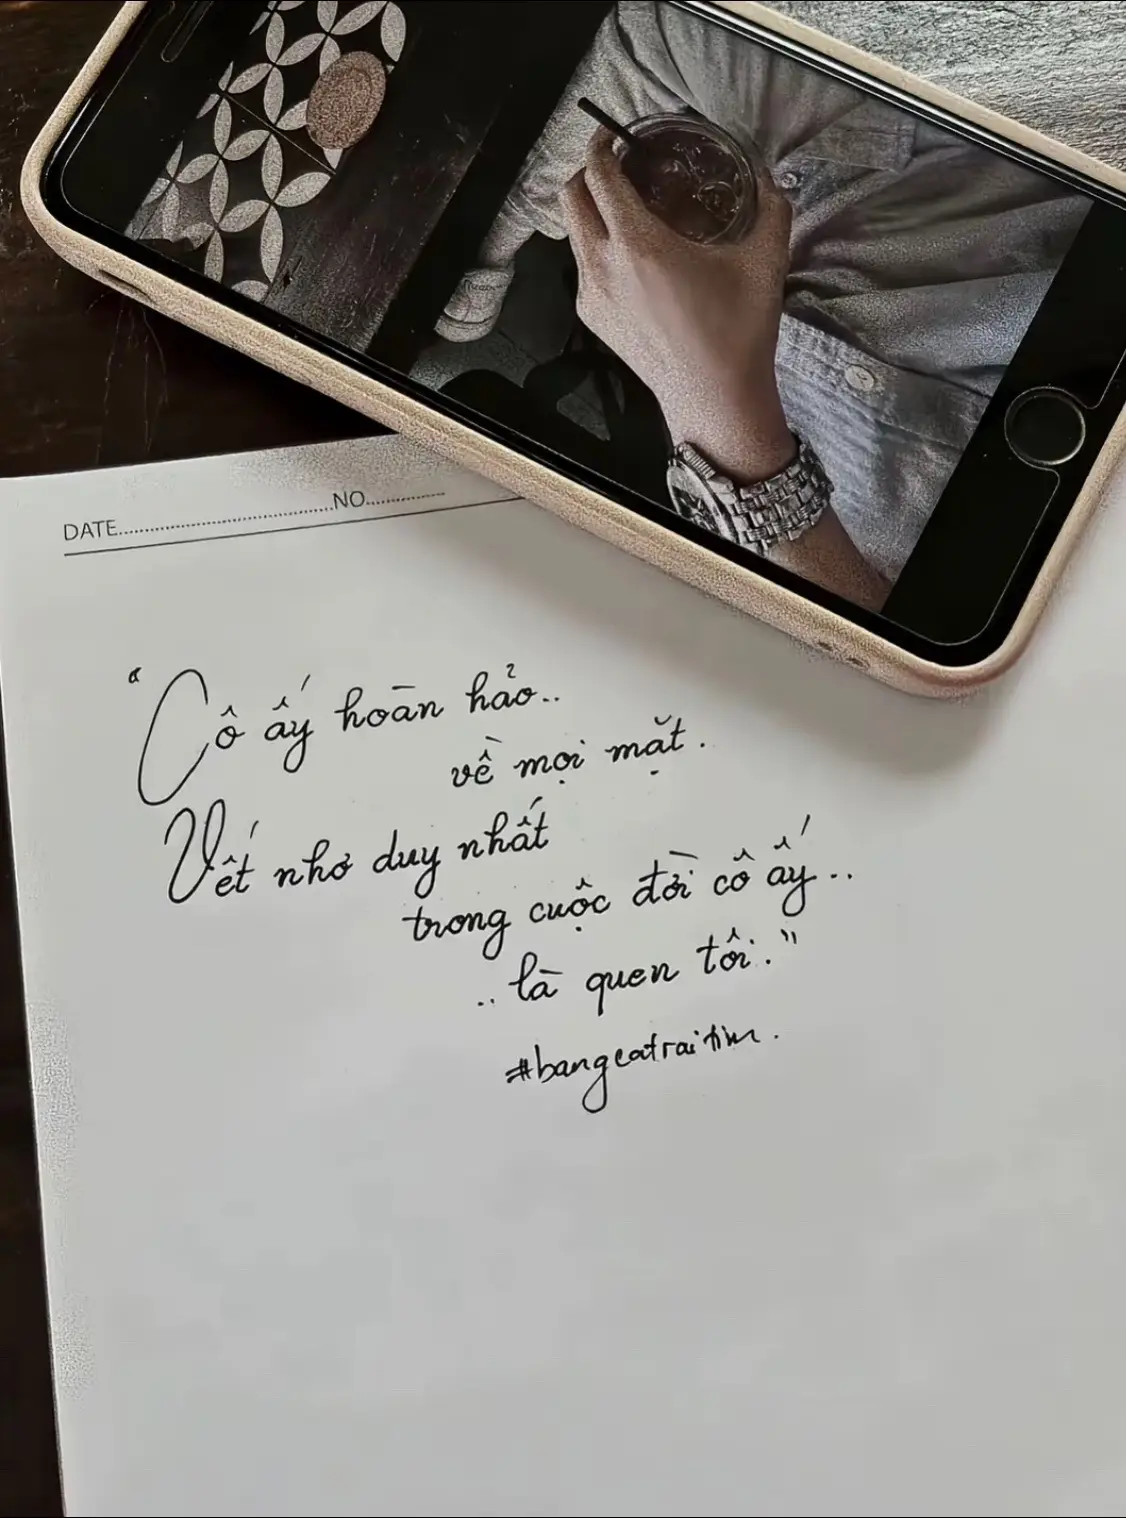 DATE........................................NO................
"Cô ấy hoàn hảo..
về mọi mặt.
Vết nhơ duy nhất
trong cuộc đời cô ấy..
..là quen tôi."
#bangcatraitim.